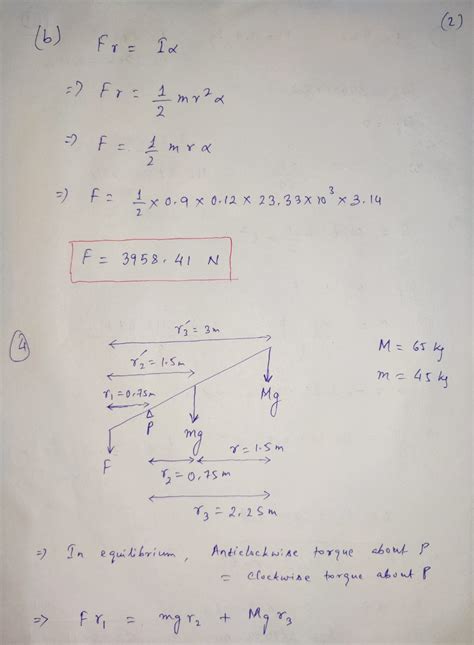 (2)
(b) Fr = Iα
=> Fr = 1/2 mr²α
=> F = 1/2 mrα
=> F = 1/2 × 0.9 × 0.12 × 23.33×10³ × 3.14
F = 3958.41 N
(4)
r₃' = 3m
r₂' = 1.5m
r₁ = 0.75m
M = 65 kg
m = 45 kg
P
Mg
mg
F
r = 1.5m
r₂ = 0.75m
r₃ = 2.25m
=> In equilibrium, Anticlockwise torque about P
= Clockwise torque about P
=> Fr₁ = mgr₂ + Mgr₃